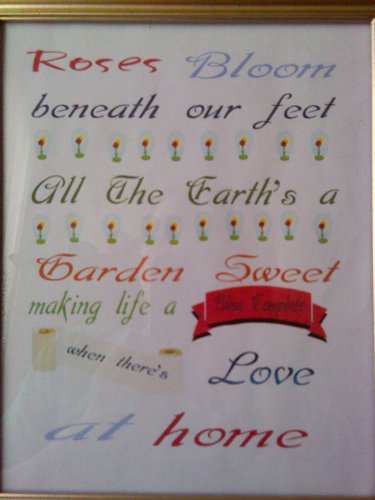 Roses Bloom
beneath our feet
All The Earth's a
Garden Sweet
making life a Bliss Complete
when there's
Love
at home